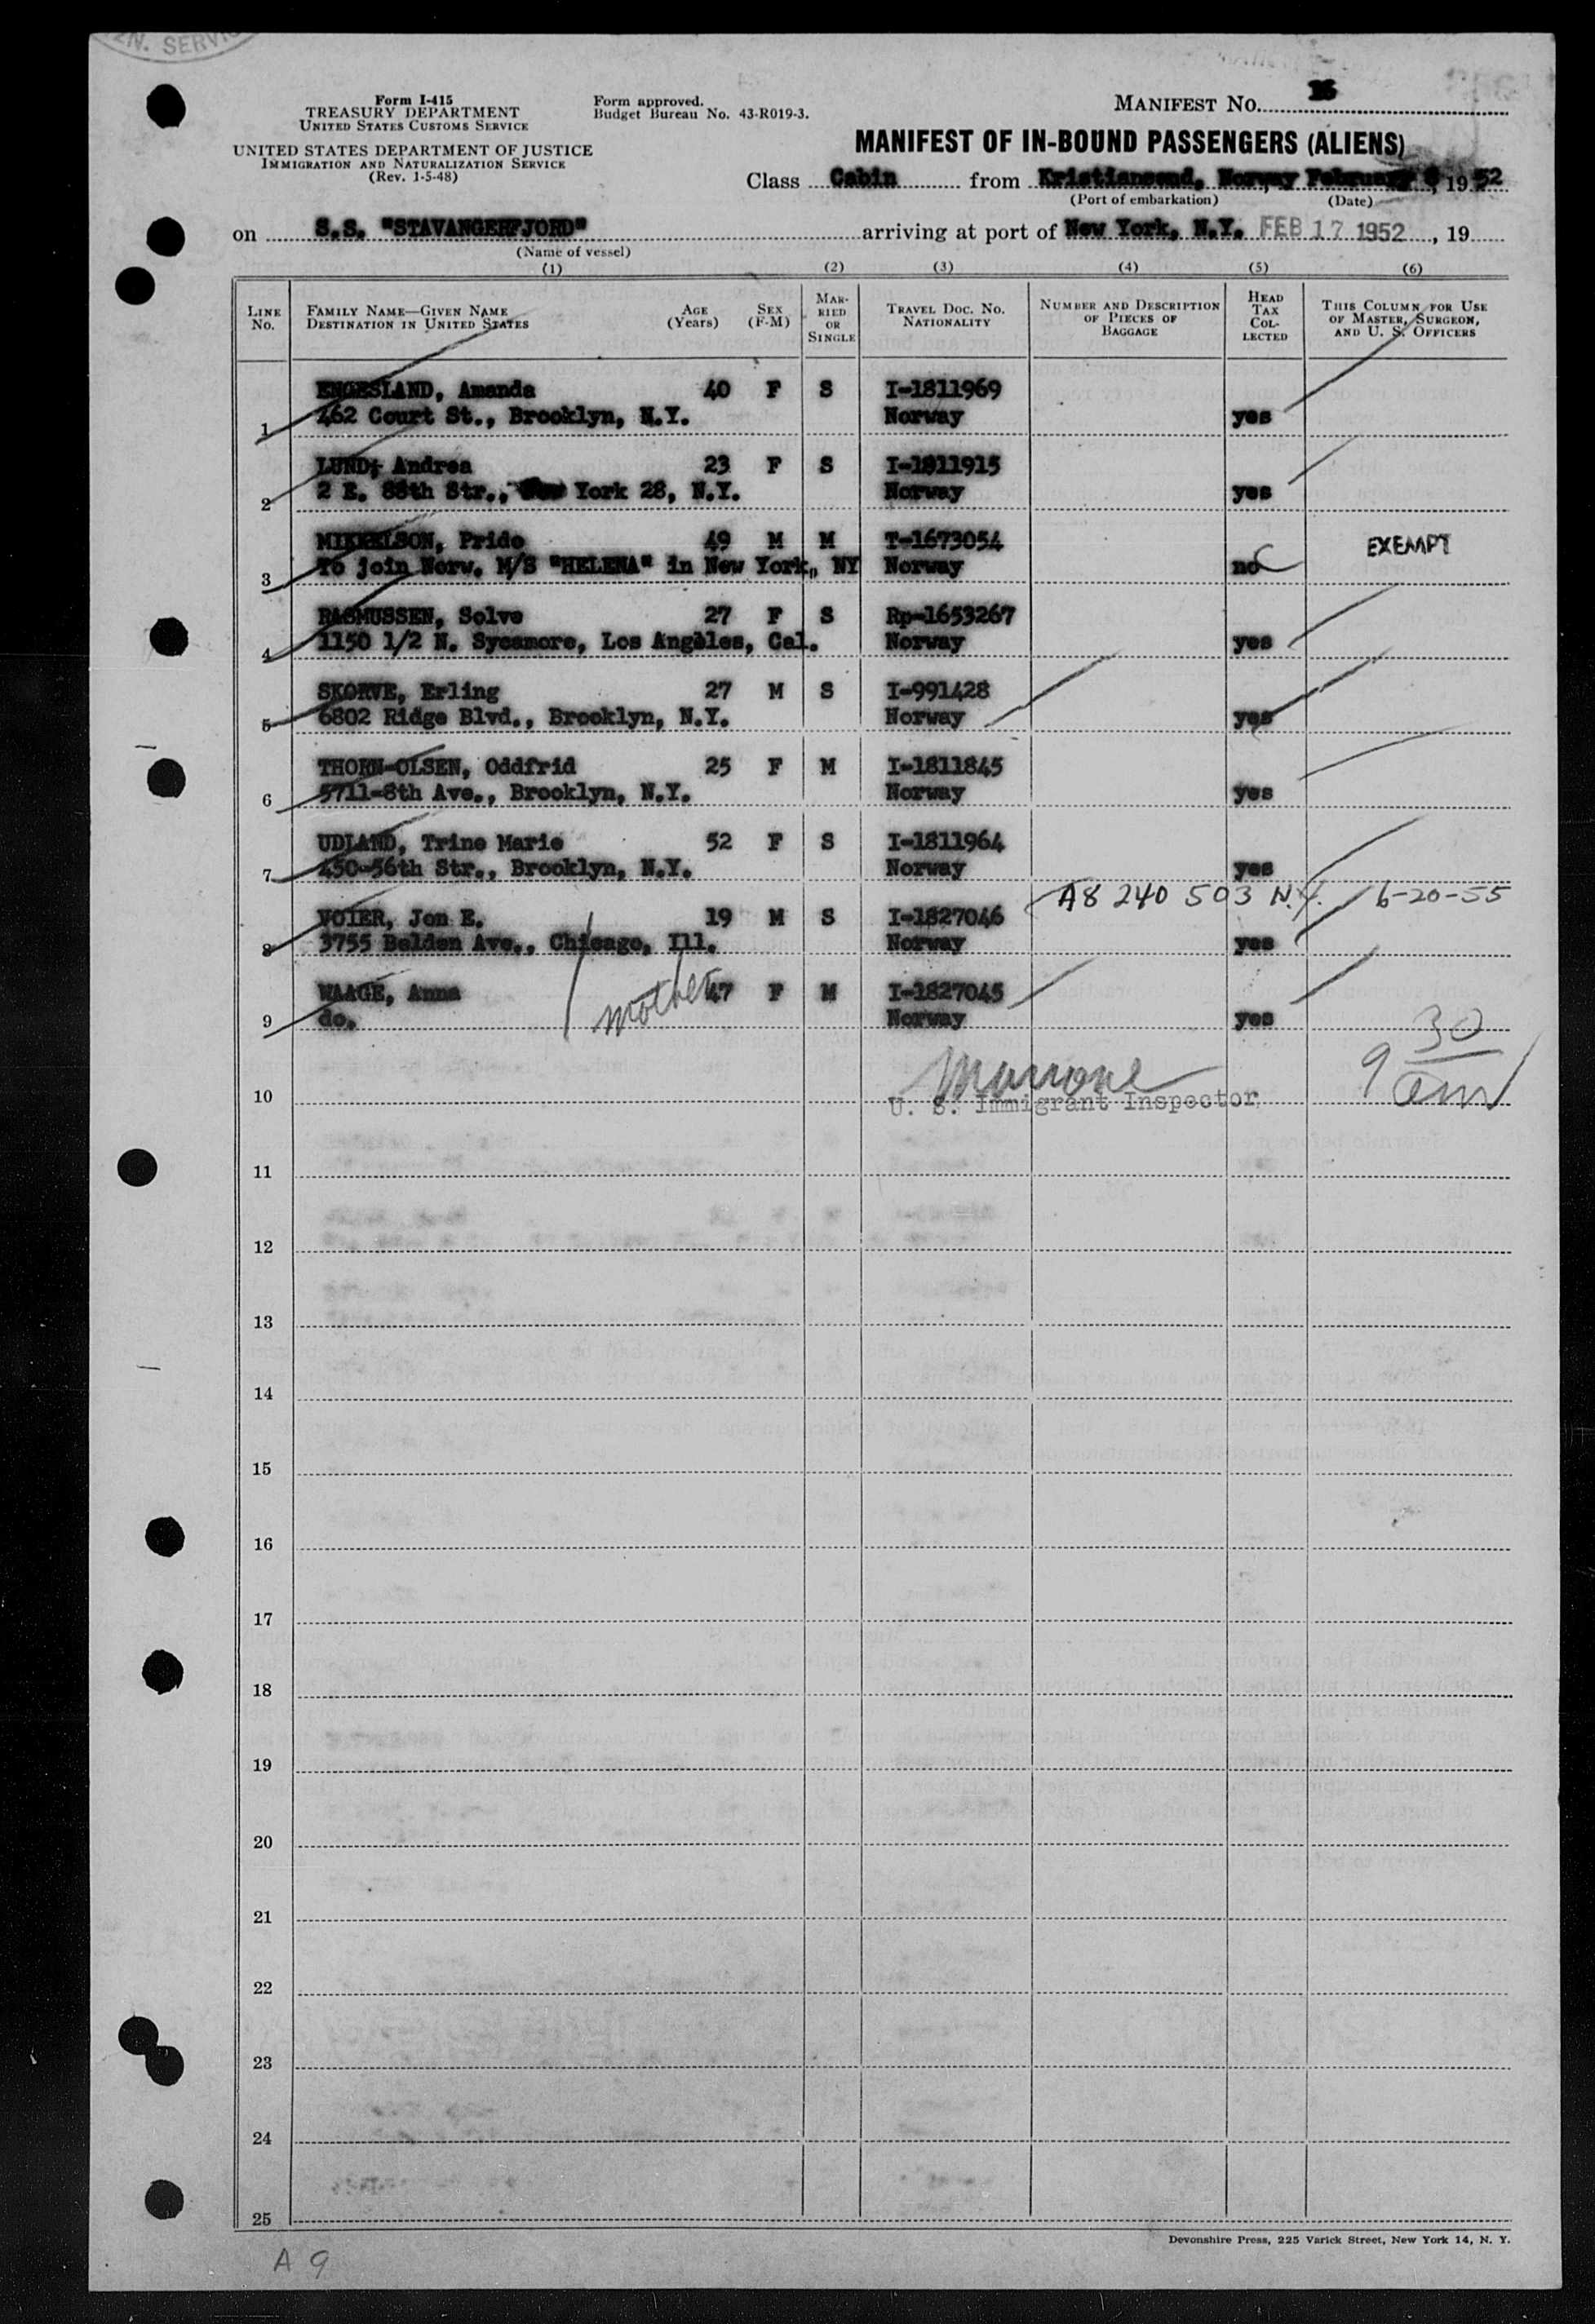 ZN. SERVIC
Form I-415
TREASURY DEPARTMENT
UNITED STATES CUSTOMS SERVICE
UNITED STATES DEPARTMENT OF JUSTICE
IMMIGRATION AND NATURALIZATION SERVICE
(Rev. 1-5-48)
Form approved.
Budget Bureau No. 43-R019-3.
MANIFEST NO.
MANIFEST OF IN-BOUND PASSENGERS (ALIENS)
Class Cabin from Kristiansand, Norway February 8, 1952
(Port of embarkation) (Date)
on S.S. "STAVANGERFJORD" arriving at port of New York, N.Y. FEB 17 1952, 19
(Name of vessel)
(1) (2) (3) (4) (5) (6)
LINE NO. FAMILY NAME—GIVEN NAME DESTINATION IN UNITED STATES AGE (Years) SEX (F-M) MARRIED OR SINGLE TRAVEL DOC. NO. NATIONALITY NUMBER AND DESCRIPTION OF PIECES OF BAGGAGE HEAD TAX COLLECTED THIS COLUMN FOR USE OF MASTER, SURGEON, AND U. S. OFFICERS
ENGESLAND, Amanda 40 F S I-1811969
1 462 Court St., Brooklyn, N.Y. Norway yes
LUND, Andrea 23 F S I-1811915
2 2 E. 88th Str., New York 28, N.Y. Norway yes
MIKKELSON, Pride 49 M M T-1673054 EXEMPT
3 To join Norw. M/S "HELENA" in New York, NY Norway no
RASMUSSEN, Solve 27 F S Rp-1653267
4 1150 1/2 N. Sycamore, Los Angeles, Cal. Norway yes
SKORVE, Erling 27 M S I-991428
5 6802 Ridge Blvd., Brooklyn, N.Y. Norway yes
THORN-OLSEN, Oddfrid 25 F M I-1811845
6 5711-8th Ave., Brooklyn, N.Y. Norway yes
UDLAND, Trine Marie 52 F S I-1811964
7 450-56th Str., Brooklyn, N.Y. Norway yes
A8 240 503 N.Y. 6-20-55
VOIER, Jon E. 19 M S I-1827046
8 3755 Belden Ave., Chicago, Ill. Norway yes
WAAGE, Anna mother 47 F M I-1827045
9 do. Norway yes
9 30 am
Marrone
10 U. S. Immigrant Inspector
11
12
13
14
15
16
17
18
19
20
21
22
23
24
25
Devonshire Press, 225 Varick Street, New York 14, N. Y.
A 9